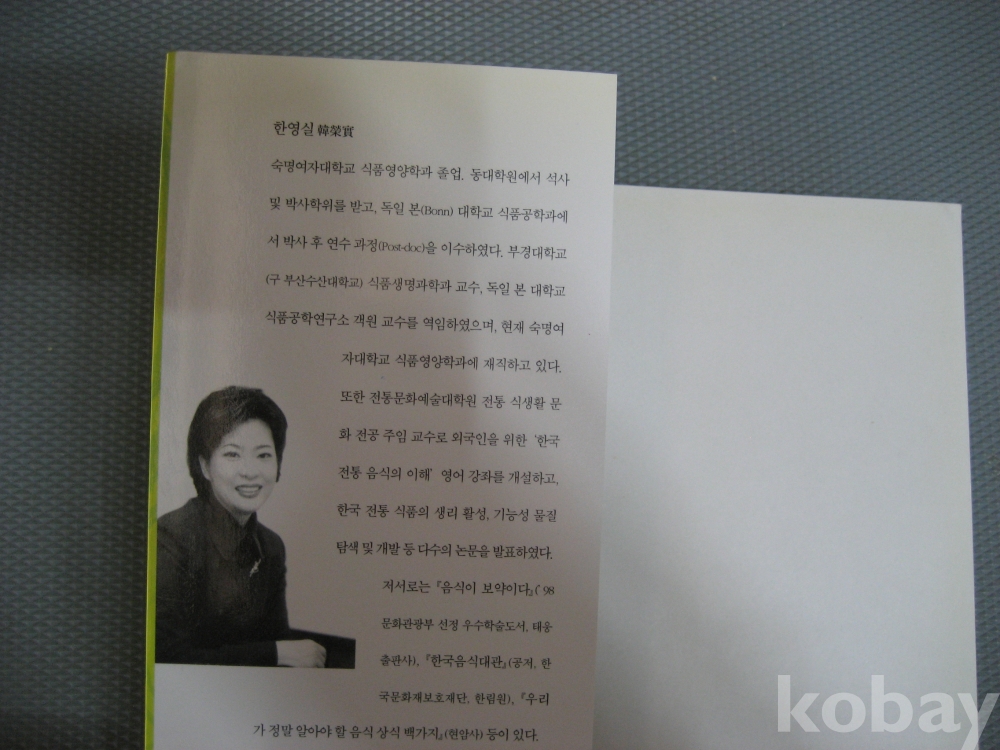 한영실 韓榮實
숙명여자대학교 식품영양학과 졸업. 동대학원에서 석사
및 박사학위를 받고, 독일 본(Bonn) 대학교 식품공학과에
서 박사 후 연수 과정(Post-doc)을 이수하였다. 부경대학교
(구 부산수산대학교) 식품생명과학과 교수, 독일 본 대학교
식품공학연구소 객원 교수를 역임하였으며, 현재 숙명여
자대학교 식품영양학과에 재직하고 있다.
또한 전통문화예술대학원 전통 식생활 문
화 전공 주임 교수로 외국인을 위한 '한국
전통 음식의 이해' 영어 강좌를 개설하고,
한국 전통 식품의 생리 활성, 기능성 물질
탐색 및 개발 등 다수의 논문을 발표하였다.
저서로는 『음식이 보약이다』('98
문화관광부 선정 우수학술도서, 태웅
출판사), 『한국음식대관』(공저, 한
국문화재보호재단, 한림원), 『우리
가 정말 알아야 할 음식 상식 백가지』(현암사) 등이 있다.
kobay